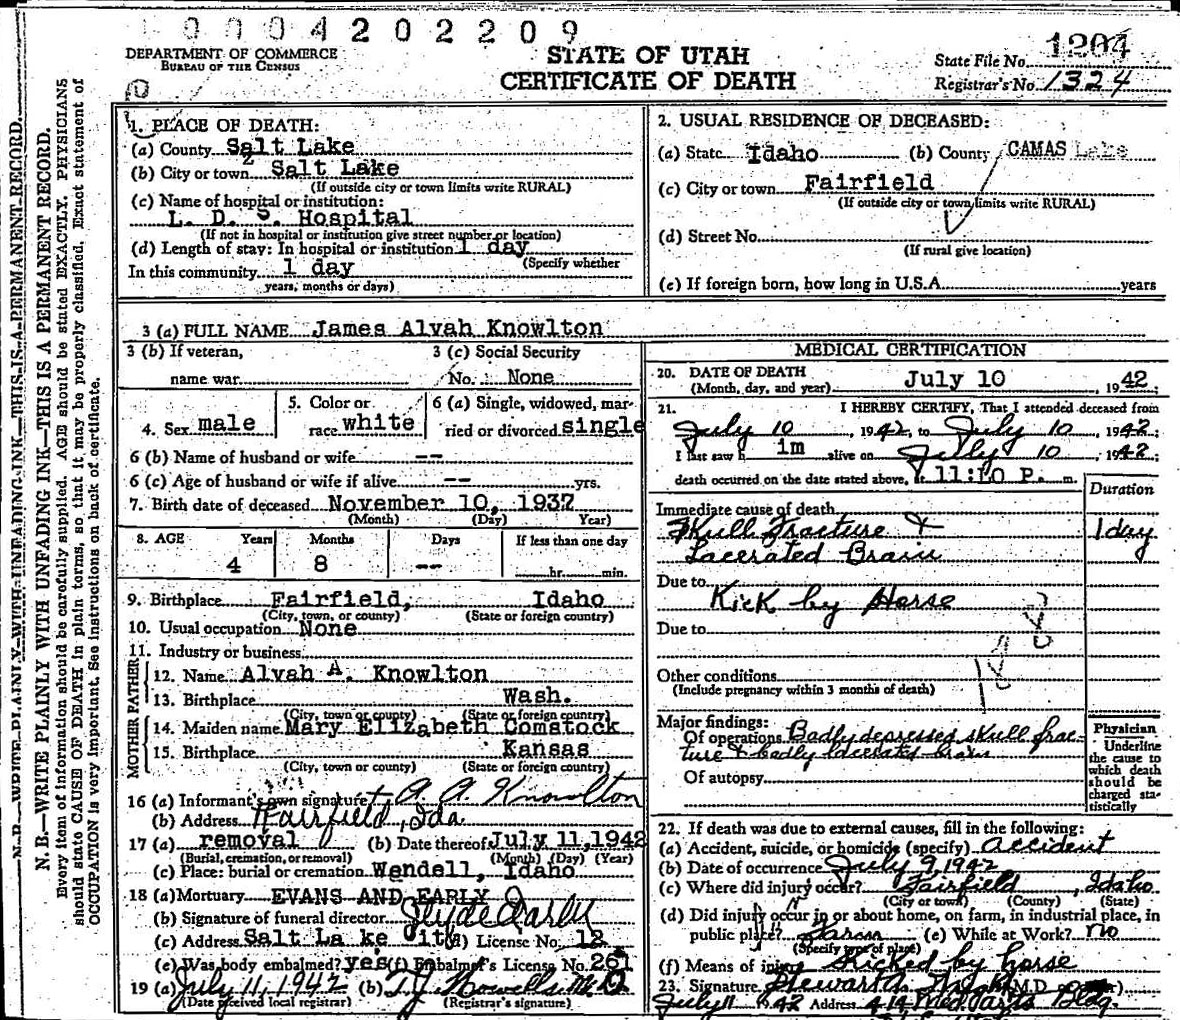 0004202209
DEPARTMENT OF COMMERCE
BUREAU OF THE CENSUS
STATE OF UTAH
CERTIFICATE OF DEATH
State File No. 1204
Registrar's No. 1324
N. B.—WRITE PLAINLY WITH UNFADING INK—THIS IS A PERMANENT RECORD.
N. B.—WRITE PLAINLY WITH UNFADING INK—THIS IS A PERMANENT RECORD.
Every item of information should be carefully supplied. AGE should be stated EXACTLY. PHYSICIANS
should state CAUSE OF DEATH in plain terms, so that it may be properly classified. Exact statement of
OCCUPATION is very important. See instructions on back of certificate.
1. PLACE OF DEATH:
(a) County Salt Lake
(b) City or town Salt Lake
(If outside city or town limits write RURAL)
(c) Name of hospital or institution:
L. D. S. Hospital
(If not in hospital or institution give street number or location)
(d) Length of stay: In hospital or institution 1 day
(Specify whether
In this community 1 day
years, months or days)
2. USUAL RESIDENCE OF DECEASED:
(a) State Idaho (b) County CAMAS Lake
(c) City or town Fairfield
(If outside city or town limits write RURAL)
(d) Street No.
(If rural give location)
(e) If foreign born, how long in U.S.A. years
3 (a) FULL NAME James Alvah Knowlton
3 (b) If veteran,
name war
3 (c) Social Security
No. None
4. Sex male
5. Color or
race white
6 (a) Single, widowed, mar-
ried or divorced single
6 (b) Name of husband or wife --
6 (c) Age of husband or wife if alive -- yrs.
7. Birth date of deceased November 10, 1937
(Month) (Day) Year)
8. AGE Years Months Days If less than one day
4 8 -- hr. min.
9. Birthplace Fairfield, Idaho
(City, town, or county) (State or foreign country)
10. Usual occupation None
11. Industry or business
FATHER
12. Name Alvah A. Knowlton
13. Birthplace Wash.
(City, town or county) (State or foreign country)
MOTHER
14. Maiden name Mary Elizabeth Comstock
15. Birthplace Kansas
(City, town or county) (State or foreign country)
16 (a) Informant's own signature A. A. Knowlton
(b) Address Fairfield, Ida.
17 (a) removal (b) Date thereof July 11, 1942
(Burial, cremation, or removal) (Month) (Day) (Year)
(c) Place: burial or cremation Wendell, Idaho
18 (a) Mortuary EVANS AND EARLY
(b) Signature of funeral director
(c) Address Salt La ke Cit (d) License No. 12
(e) Was body embalmed? yes (f) Embalmer's License No. 261
19 (a) July 11, 1942 (b) M.D.
(Date received local registrar) (Registrar's signature)
MEDICAL CERTIFICATION
20. DATE OF DEATH
(Month, day, and year) July 10, 1942;
21. I HEREBY CERTIFY, That I attended deceased from
July 10, 1942, to July 10, 1942;
I last saw h im alive on July 10, 1942;
death occurred on the date stated above, at 11:10 P. m.
Duration
Immediate cause of death
Skull Fracture & 1 day
Lacerated Brain
Due to
Kick by Horse
Due to
Other conditions
(Include pregnancy within 3 months of death)
Major findings:
Of operations Badly depressed skull frac-
ture & badly lacerated brain
Of autopsy
Physician
Underline
the cause to
which death
should be
charged sta-
tistically
22. If death was due to external causes, fill in the following:
(a) Accident, suicide, or homicide (specify) accident
(b) Date of occurrence July 9, 1942
(c) Where did injury occur? Fairfield, Idaho
(City or town) (County) (State)
(d) Did injury occur in or about home, on farm, in industrial place, in
public place? Farm (e) While at Work? no
(Specify type of place)
(f) Means of injury Kicked by horse
23. Signature Stewart A. Wright (M.D. or
July 11 1942 Address 414 Med. Arts Bldg.